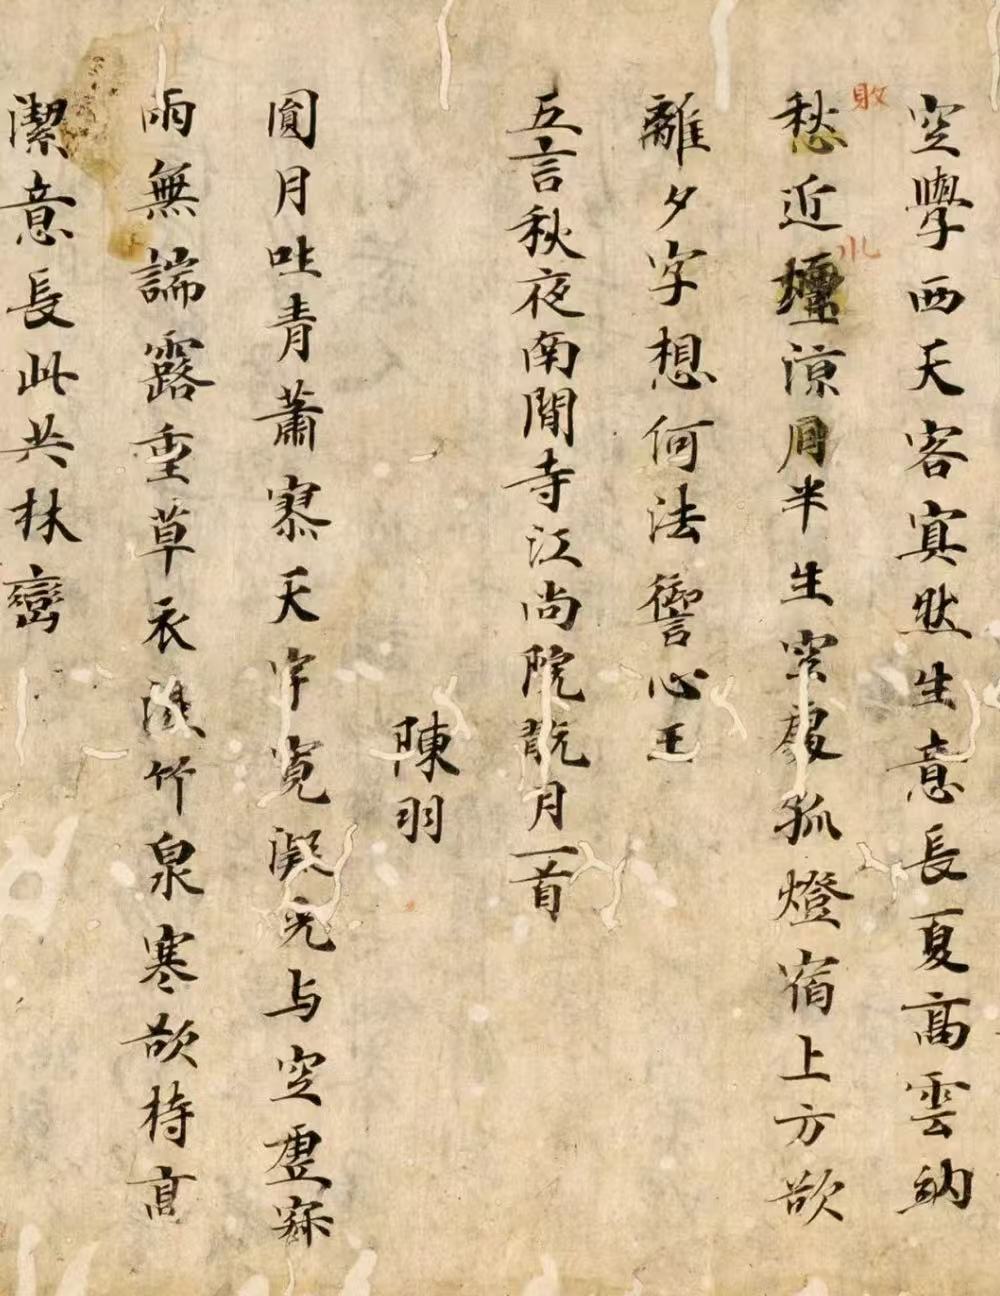 空學西天客冥然生意長夏高雲納
愁近壇涼月半生空處孤燈宿上方欲
敗
水
離夕字想何法禦心王
五言秋夜南閒寺江尚院翫月一首
陳羽
圓月吐青蕭寥天宇寬凝光与空虛寂
雨無端露重草衣濕竹泉寒欲持高
潔意長此共林巒